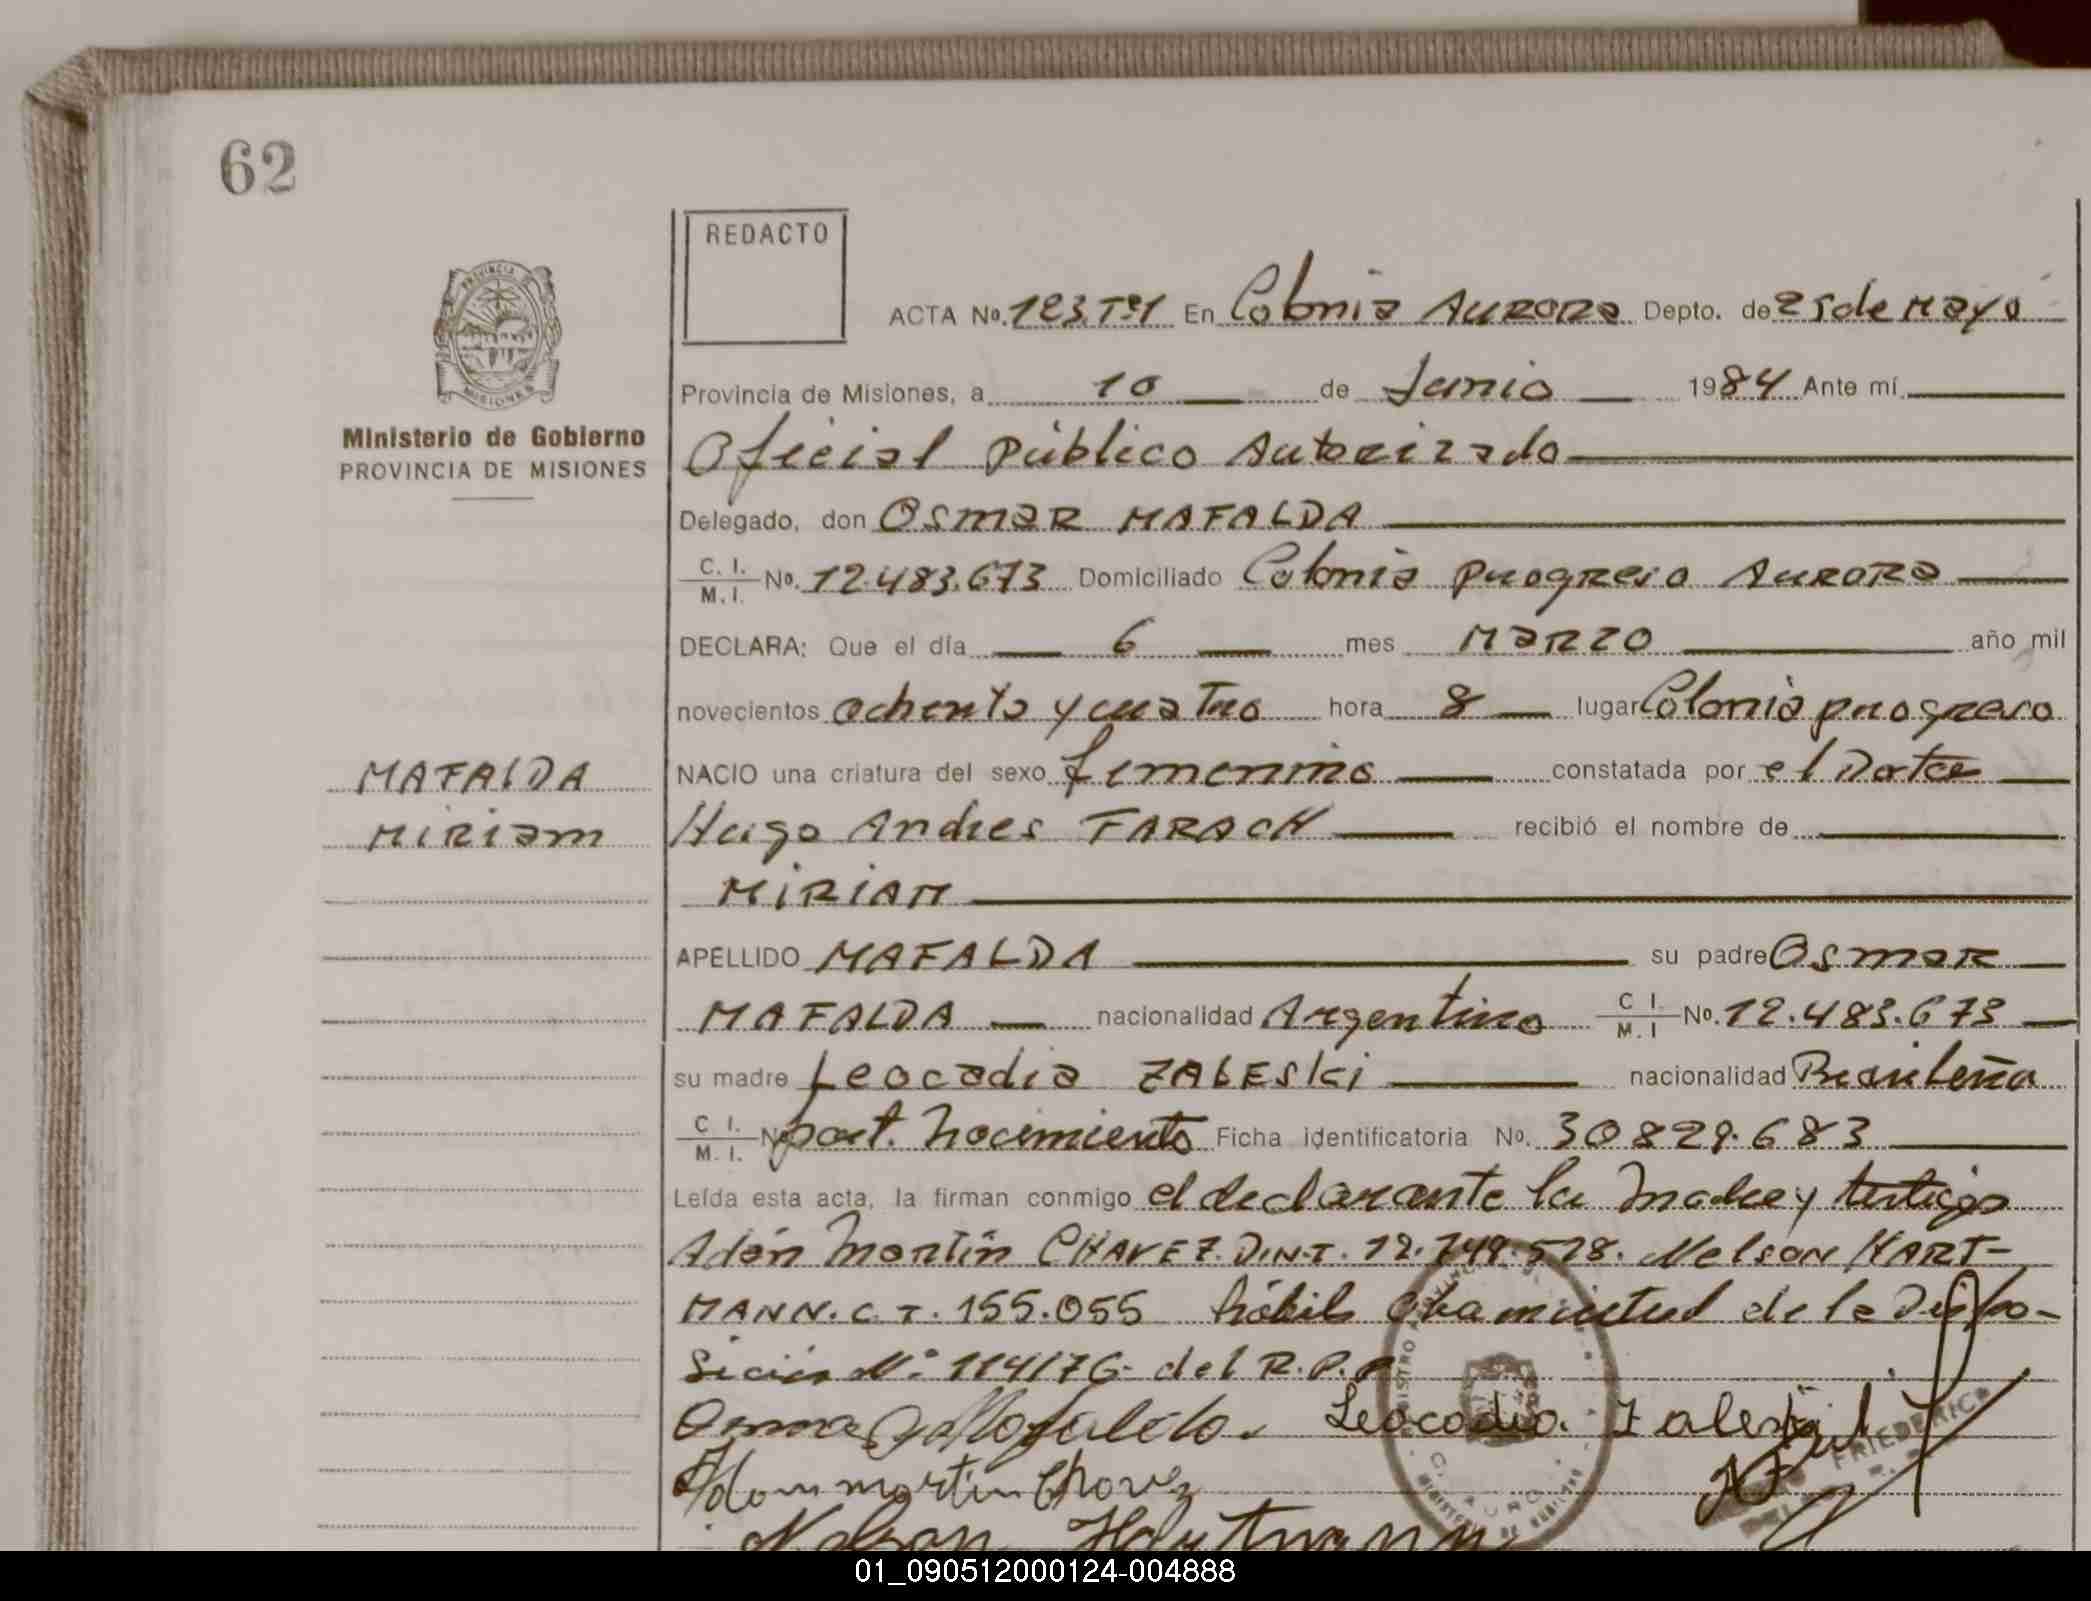 62
REDACTO
ACTA No. 123.Tº1 En Colonia AURORA Depto. de 25 de Mayo
Provincia de Misiones, a 10 de Junio 1984 Ante mí
Oficial Público Autorizado
Delegado, don OSMAR MAFALDA
C. I. / M. I. No. 12.483.673 Domiciliado Colonia progreso AURORA
DECLARA: Que el día 6 mes MARZO año mil
novecientos ochenta y cuatro hora 8 lugar Colonia progreso
NACIO una criatura del sexo femenino constatada por el Doctor
Hugo Andres FARACH recibió el nombre de
MIRIAM
APELLIDO MAFALDA su padre OSMAR
MAFALDA nacionalidad Argentino C I. / M. I No. 12.483.673
su madre Leocadia ZALESKI nacionalidad Brasileña
C I. / M. I. Nº part. Nacimiento Ficha identificatoria No. 30829.683
Leída esta acta, la firman conmigo el declarante la Madre y testigos
Adán Martín CHAVEZ. D.N.I. 12.749.578. Nelson HART-
MANN. C. I. 155.055 hábiles de la Dispo-
sición Nº 114/76- del R.P.P
Leocadia Zaleski
Adam martin Chavez
Nelson Hartmann
PROVINCIA
MISIONES
Ministerio de Gobierno
PROVINCIA DE MISIONES
MAFALDA
MIRIAM
FRIEDERICH
01_090512000124-004888